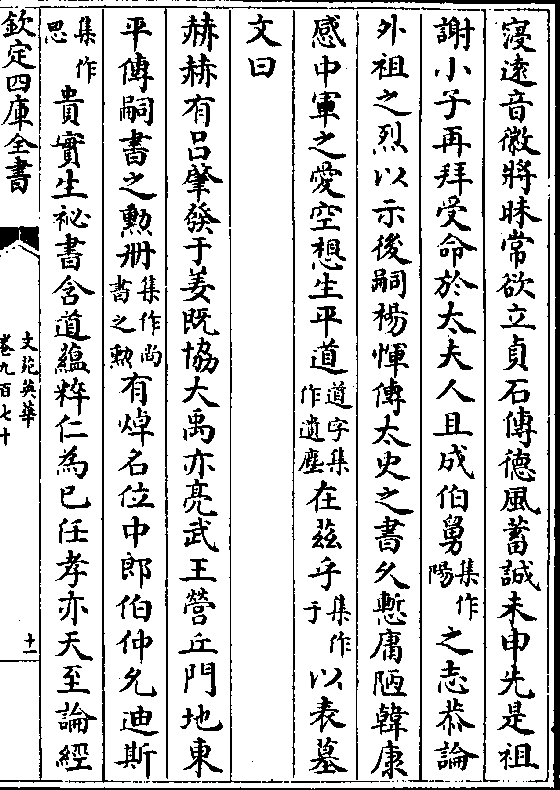 寖遠音徽將昧常欲立貞石傳德風蓄誠未申先是祖
謝小子再拜受命於太夫人且成伯舅集作陽之志恭論
外祖之烈以示後嗣楊惲傳太史之書久慙庸陋韓康
感中軍之愛空想生平道道字集作遺塵在茲乎集作于以表墓
文曰
赫赫有吕肇發于姜既協大禹亦亮武王營丘門地東
平傳嗣書之勲册集作尚書之勲有焯名位中郎伯仲允迪斯
集作思貴實生袐書含道蘊粹仁為已任孝亦天至論經
欽定四庫全書
文苑英華
卷九百七十
十一